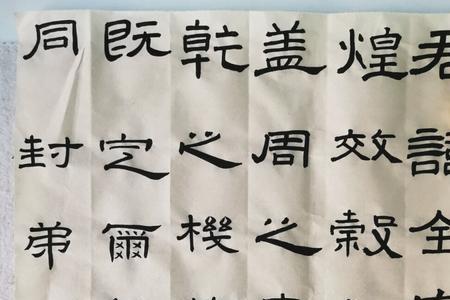 君諱全
煌效穀
盖周之
乾之機
既定爾
同封弟